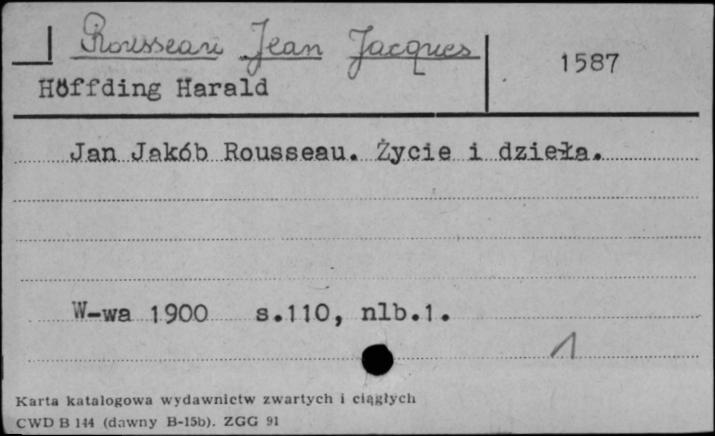 Rousseau Jean Jacques
1587
Höffding Harald
Jan Jakób Rousseau. Życie i dzieła.
W-wa 1900 s.110, nlb.1.
1
Karta katalogowa wydawnictw zwartych i ciągłych
CWD B 144 (dawny B-15b). ZGG 91